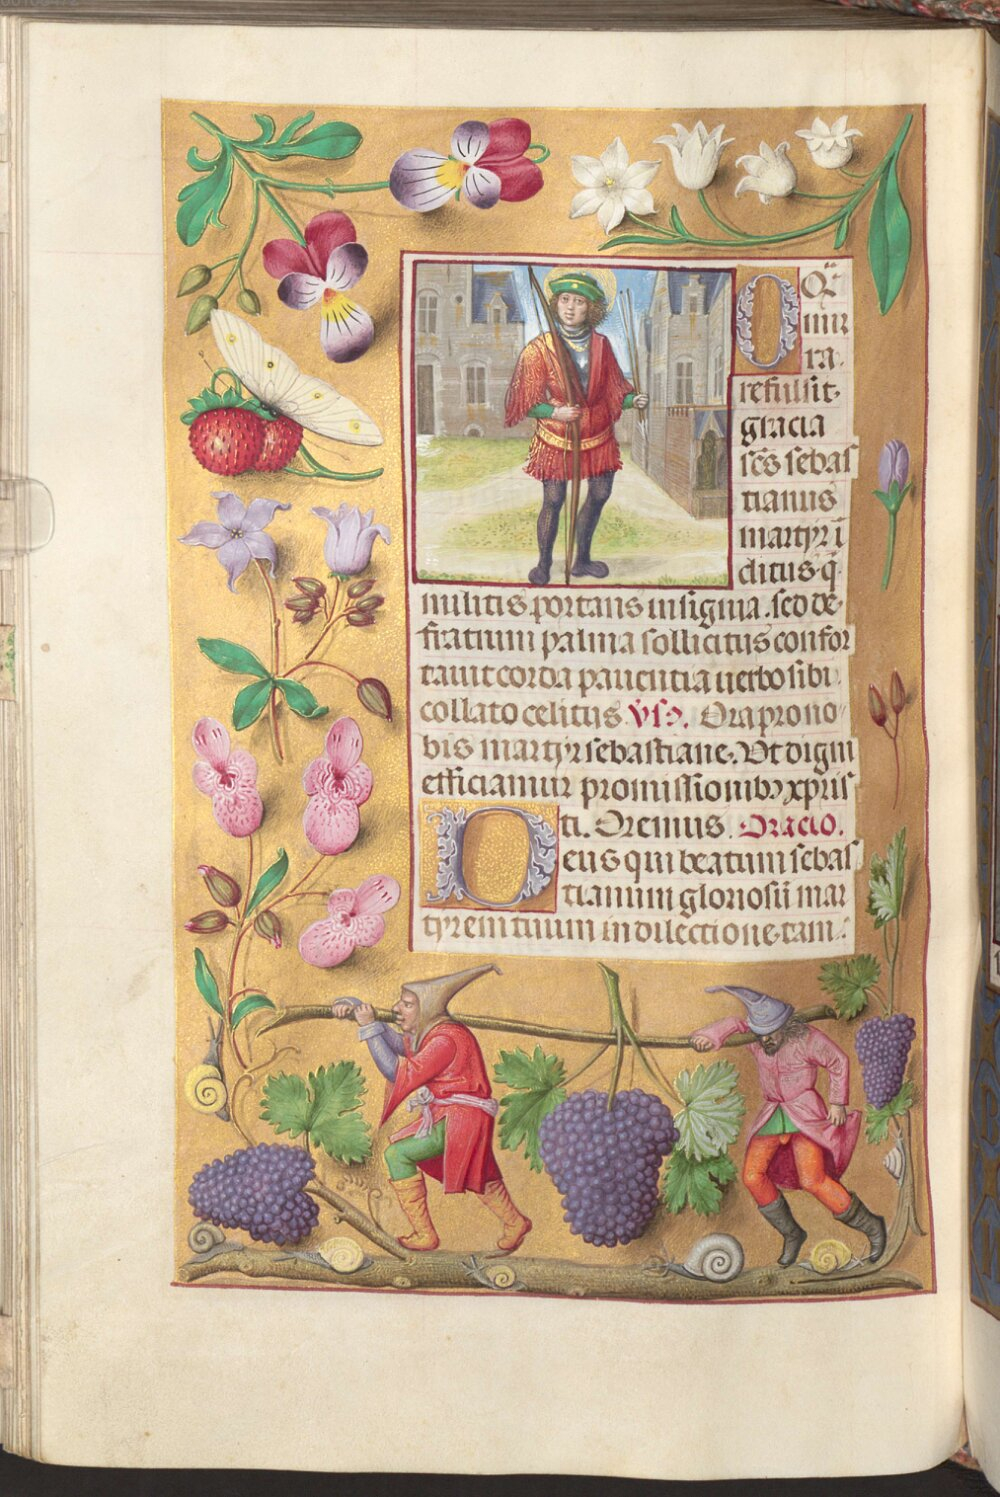 O Q̄
mir
ra
refulsit
gracia
scs̄ sebas
tianus
martyr ī
clitus q̄
militis portans insignia. sed de
fratrum palma sollicitus confor
tauit corda pauencia uerbo sibi
collato celitus Vs̄. Ora pro no
bis martyr sebastiane. Vt digni
efficiamur promissionibꝫ xpris
ti. Oremus. Oracio.
Deus qui beatum sebas
tianum gloriosū mar
tyrem tuum in dilectione tam